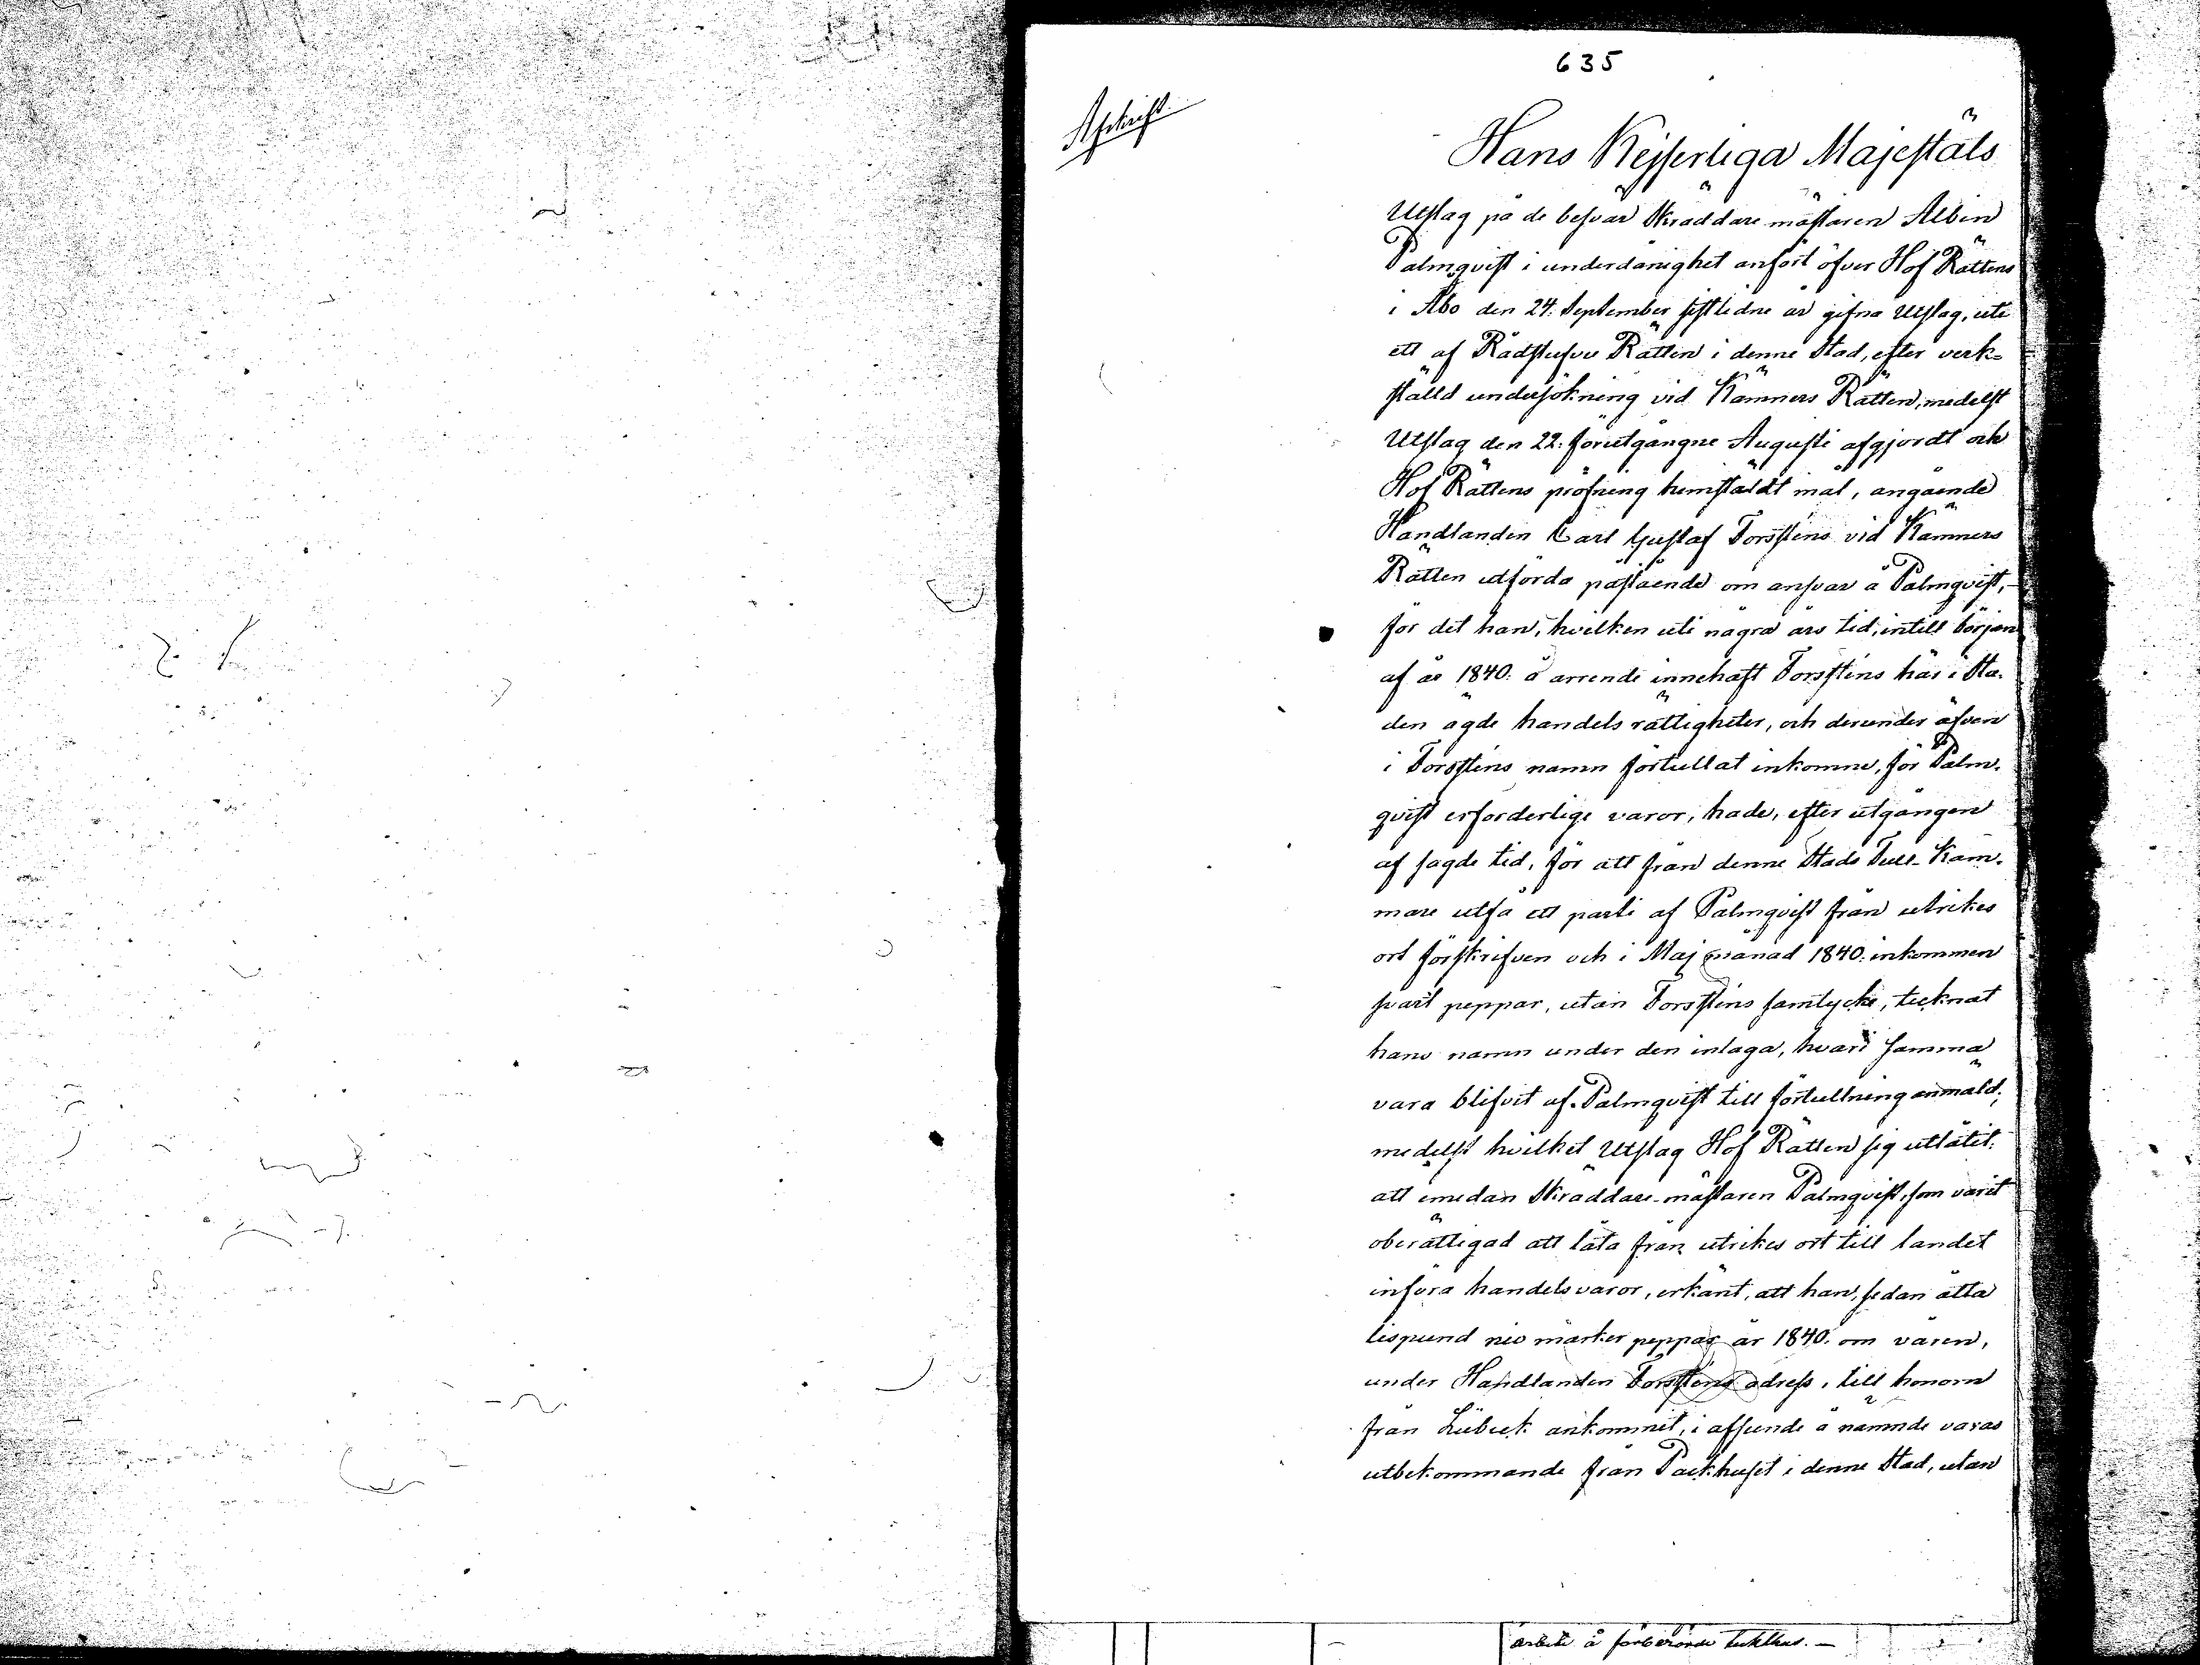 635
Afskrift
Hans Kejserliga Majestäts
Utslag på de besvär Skräddare mästaren Albin
Palmqvist i underdånighet anfört öfver Hof Rättens
i Åbo den 24. September sistledne år gifna Utslag, uti
ett af Rådstufvu Rätten i denne Stad, efter verk-
ställd undersökning vid Kämners Rätten, medelst
Utslag den 22. förutgångne Augusti afgjordt och
Hof Rättens pröfning hemstäldt mål, angående
Handlanden Carl Gustaf Forsténs vid Kämners
Rätten utförda påstående om ansvar å Palmqvist,
för det han, hvilken uti några års tid, intill början
af år 1840. å arrende innehaft Forsténs här i Sta-
den ägde handels rättigheter, och derunder äfven
i Forsténs namn förtullat inkomne, för Palm-
qvist erforderlige varor, hade, efter utgången
af sagde tid, för att från denne Stads Tull-Kam-
mare utfå ett parti af Palmqvist från utrikes
ort förskrifven och i Maj månad 1840. inkommen
svart peppar, utan Forsténs samtycke, tecknat
hans namn under den inlaga, hvari samma
vara blifvit af Palmqvist till förtullning anmäld;
medelst hvilket Utslag Hof Rätten sig utlåtit:
att emedan Skräddare-mästaren Palmqvist, som varit
oberättigad att låta från utrikes ort till landet
införa handelsvaror, erkänt, att han, sedan åtta
lispund nio marker peppar år 1840. om våren,
under Handlanden Forsténs adress, till honom
från Lübeck ankommit, i afseende å nämnde varas
utbekommande från Packhuset i denne Stad, utan
arbete å förberörde tukthus.